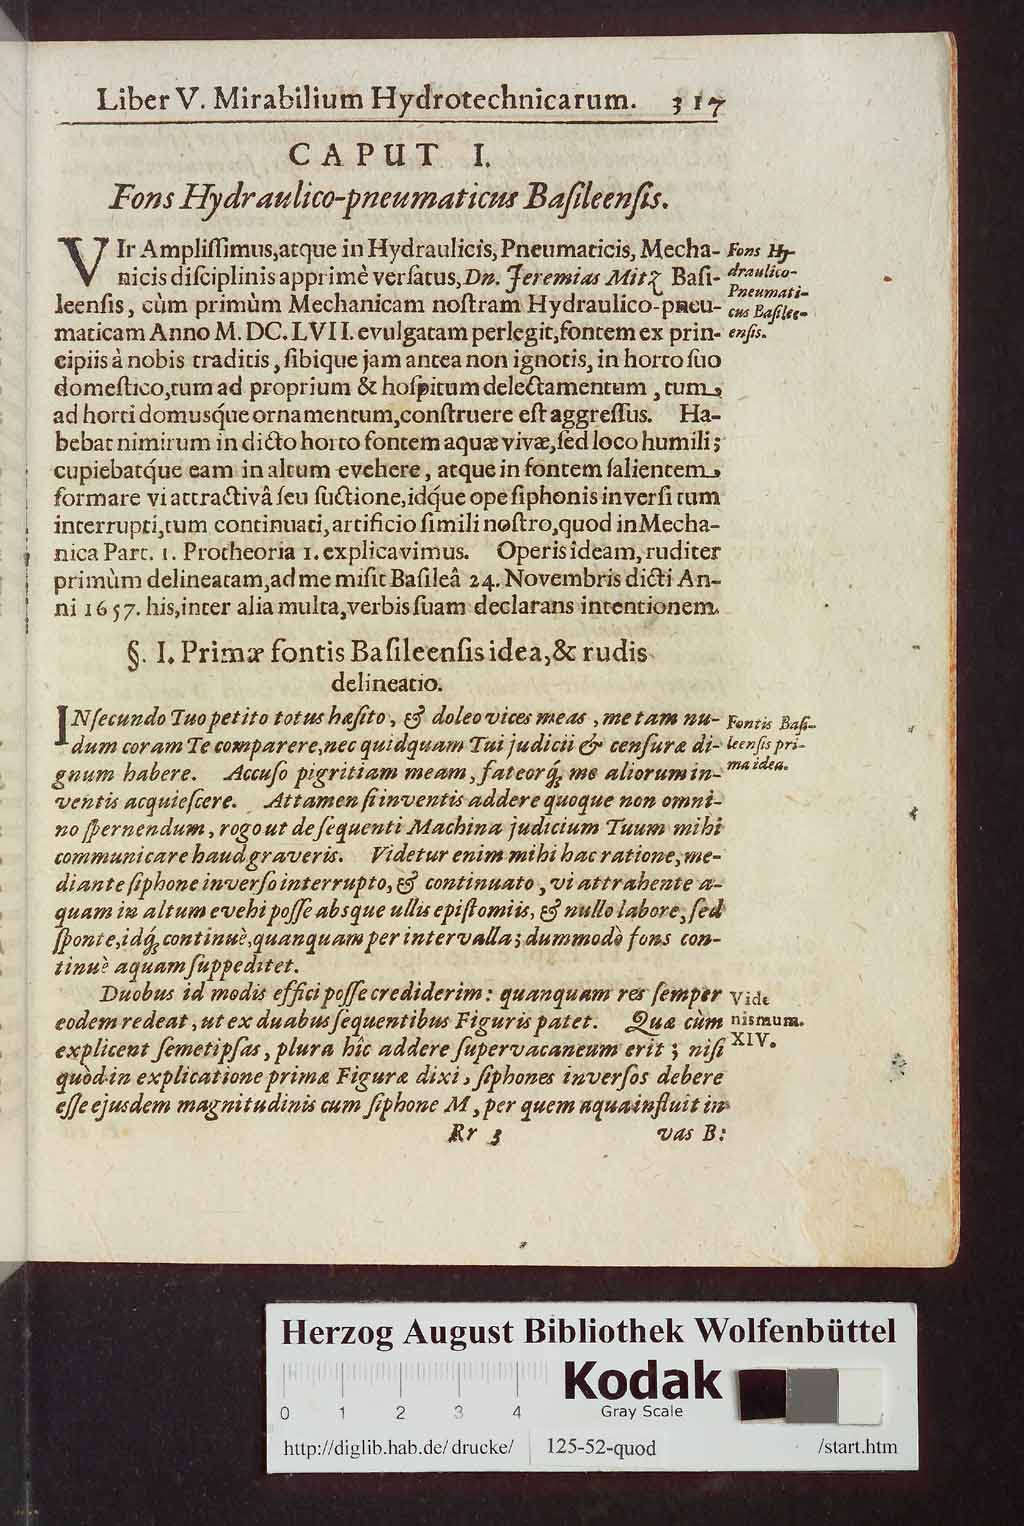 Liber V. Mirabilium Hydrotechnicarum. 317
CAPUT I.
Fons Hydraulico-pneumaticus Baſileenſis.
VIr Ampliſſimus, atque in Hydraulicis, Pneumaticis, Mecha-
nicis diſciplinis apprimè verſatus, Dn. Jeremias Mitz Baſi-
leenſis, cùm primùm Mechanicam noſtram Hydraulico-pneu-
maticam Anno M. DC. LVII. evulgatam perlegit, fontem ex prin-
cipiis à nobis traditis, ſibique jam antea non ignotis, in horto ſuo
domeſtico, tum ad proprium & hoſpitum delectamentum, tum
ad horti domusq́ue ornamentum, conſtruere eſt aggreſſus. Ha-
bebat nimirum in dicto horto fontem aquæ vivæ, ſed loco humili;
cupiebatq́ue eam in altum evehere, atque in fontem ſalientem
formare vi attractivâ ſeu ſuctione, idq́ue ope ſiphonis inverſi tum
interrupti, tum continuati, artificio ſimili noſtro, quod in Mecha-
nica Part. 1. Protheoria 1. explicavimus. Operis ideam, ruditer
primùm delineatam, ad me miſit Baſileâ 24. Novembris dicti An-
ni 1657. his, inter alia multa, verbis ſuam declarans intentionem.
Fons Hy-
draulico-
Pneumati-
cus Baſilee-
enſis.
§. I. Primæ fontis Baſileenſis idea, & rudis
delineatio.
INſecundo Tuo petito totus hæſito, & doleo vices meas, me tam nu-
dum coram Te comparere, nec quidquam Tui judicii & cenſuræ di-
gnum habere. Accuſo pigritiam meam, fateorq́; me aliorum in-
ventis acquieſcere. Attamen ſi inventis addere quoque non omni-
no ſpernendum, rogo ut de ſequenti Machina judicium Tuum mihi
communicare haud graveris. Videtur enim mihi hac ratione, me-
diante ſiphone inverſo interrupto, & continuato, vi attrahente a-
quam in altum evehi poſſe absque ullis epiſtomiis, & nullo labore, ſed
ſponte, idq́; continuè, quanquam per intervalla; dummodò fons con-
tinuè aquam ſuppeditet.
Fontis Baſi-
leenſis pri-
ma idea.
Duobus id modis effici poſſe crediderim: quanquam res ſemper
eodem redeat, ut ex duabus ſequentibus Figuris patet. Quæ cùm
explicent ſemetipſas, plura hîc addere ſupervacaneum erit; niſi
quòd in explicatione primæ Figuræ dixi, ſiphones inverſos debere
eſſe ejusdem magnitudinis cum ſiphone M, per quem aqua influit in
Vide
nismum.
XIV.
Rr 3 vas B:
Herzog August Bibliothek Wolfenbüttel
Kodak
Gray Scale
0 1 2 3 4
http://diglib.hab.de/drucke/ 125-52-quod /start.htm